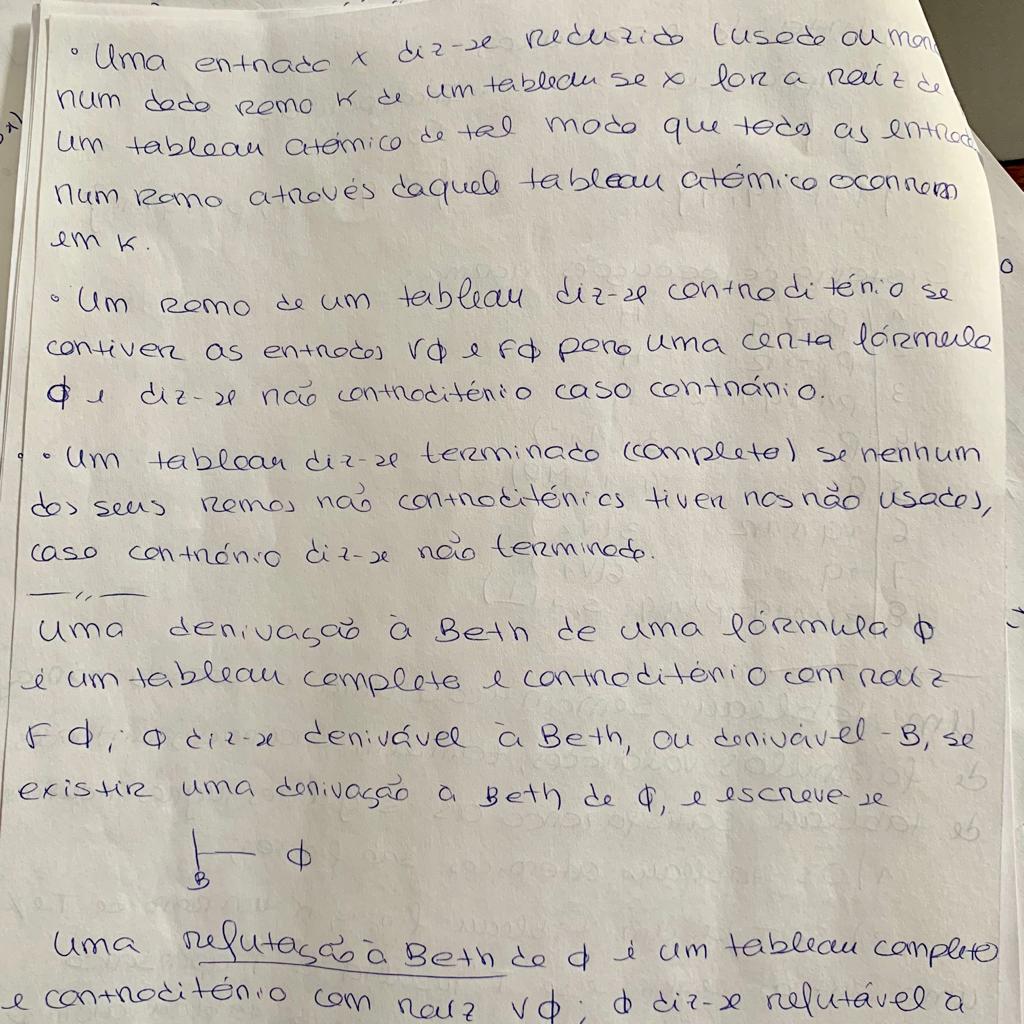 • Uma entrada x diz-se reduzido (usado ou
num dado ramo K de um tableau se x for a raíz de
um tableau atómico de tal modo que todas as
num ramo através daquele tableau atómico ocorrem
em K.
• Um ramo de um tableau diz-se contraditório se
contiver as entradas Vϕ e Fϕ para uma certa fórmula
ϕ e diz-se não contraditório caso contrário.
• Um tableau diz-se terminado (completo) se nenhum
dos seus ramos não contraditórios tiver nos não usados,
caso contrário diz-se não terminado.
— ,, —
Uma derivação à Beth de uma fórmula ϕ
é um tableau completo e contraditório com raíz
Fϕ; ϕ diz-se derivável à Beth, ou derivável-B, se
existir uma derivação a Beth de ϕ, e escreve-se
⊢ ϕ
B
Uma refutação à Beth de ϕ é um tableau completo
e contraditório com raíz Vϕ; ϕ diz-se refutável a